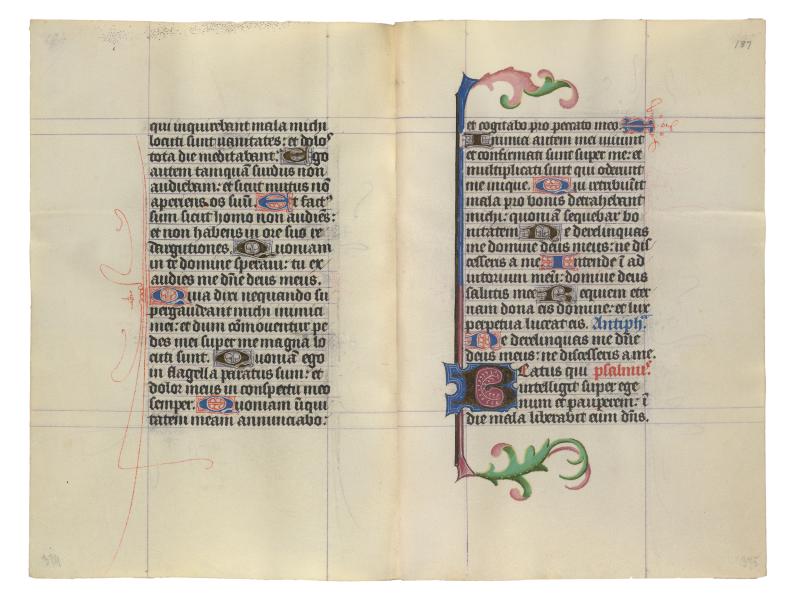 qui inquirebant mala michi
locuti sunt vanitates: et dolos
tota die meditabant: Ego
autem tamquã surdus non
audiebam: et sicut mutus nõ
aperiens os suũ. Et fact᷒
sum sicut homo non audiẽs:
et non habens in ore suo re
dargutiones. Quoniam
in te domine speraui: tu ex
audies me dñe deus meus.
Quia dixi nequando su
pergaudeant michi inimici
mei: et dum cõmouentur pe
des mei super me magna lo
cuti sunt. Quoniã ego
in flagella paratus sum: et
dolor meus in conspectu meo
semper. Quoniam iniqui
tatem meam annunciabo:
187
et cogitabo pro peccato meo.
Inimici autem mei uiuunt
et confirmati sunt super me: et
multiplicati sunt qui oderunt
me inique. Qui retribuũt
mala pro bonis detrahebant
michi: quoniã sequebar bo
nitatem. Ne derelinquas
me domine deus meus: ne dis
cesseris a me. Intende ĩ ad
iutorium meũ: domine deus
salutis mee. Requiem eter
nam dona eis domine: et lux
perpetua luceat eis. Antiph᷒.
Ne derelinquas me dñe
deus meus: ne discesseris a me.
BEatus qui psalmus.
intelligit super ege
num et pauperem: ĩ
die mala liberabit eum dñs.
374
375